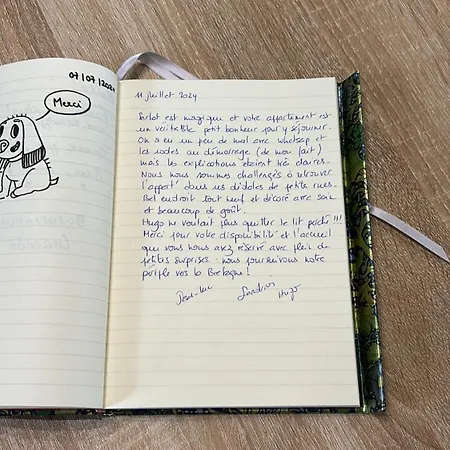 07/07/2024
Merci
11 juillet 2024
Sarlat est magique et votre appartement est
un véritable petit bonheur pour y séjourner.
On a eu un peu de mal avec whatsap et
les codes au démarrage (de mon fait)
mais les explications étaient très claires.
Nous nous sommes challengés à retrouver
l'appart' dans ces dédales de petites rues.
Bel endroit tout neuf et décoré avec soin
et beaucoup de goût.
Hugo ne voulait plus quitter le lit perché !!!
Merci pour votre disponibilité et l'accueil
que vous nous avez réservé avec plein de
petites surprises. nous poursuivons notre
périple vers la Bretagne !
Jean-luc Sandrine Hugo